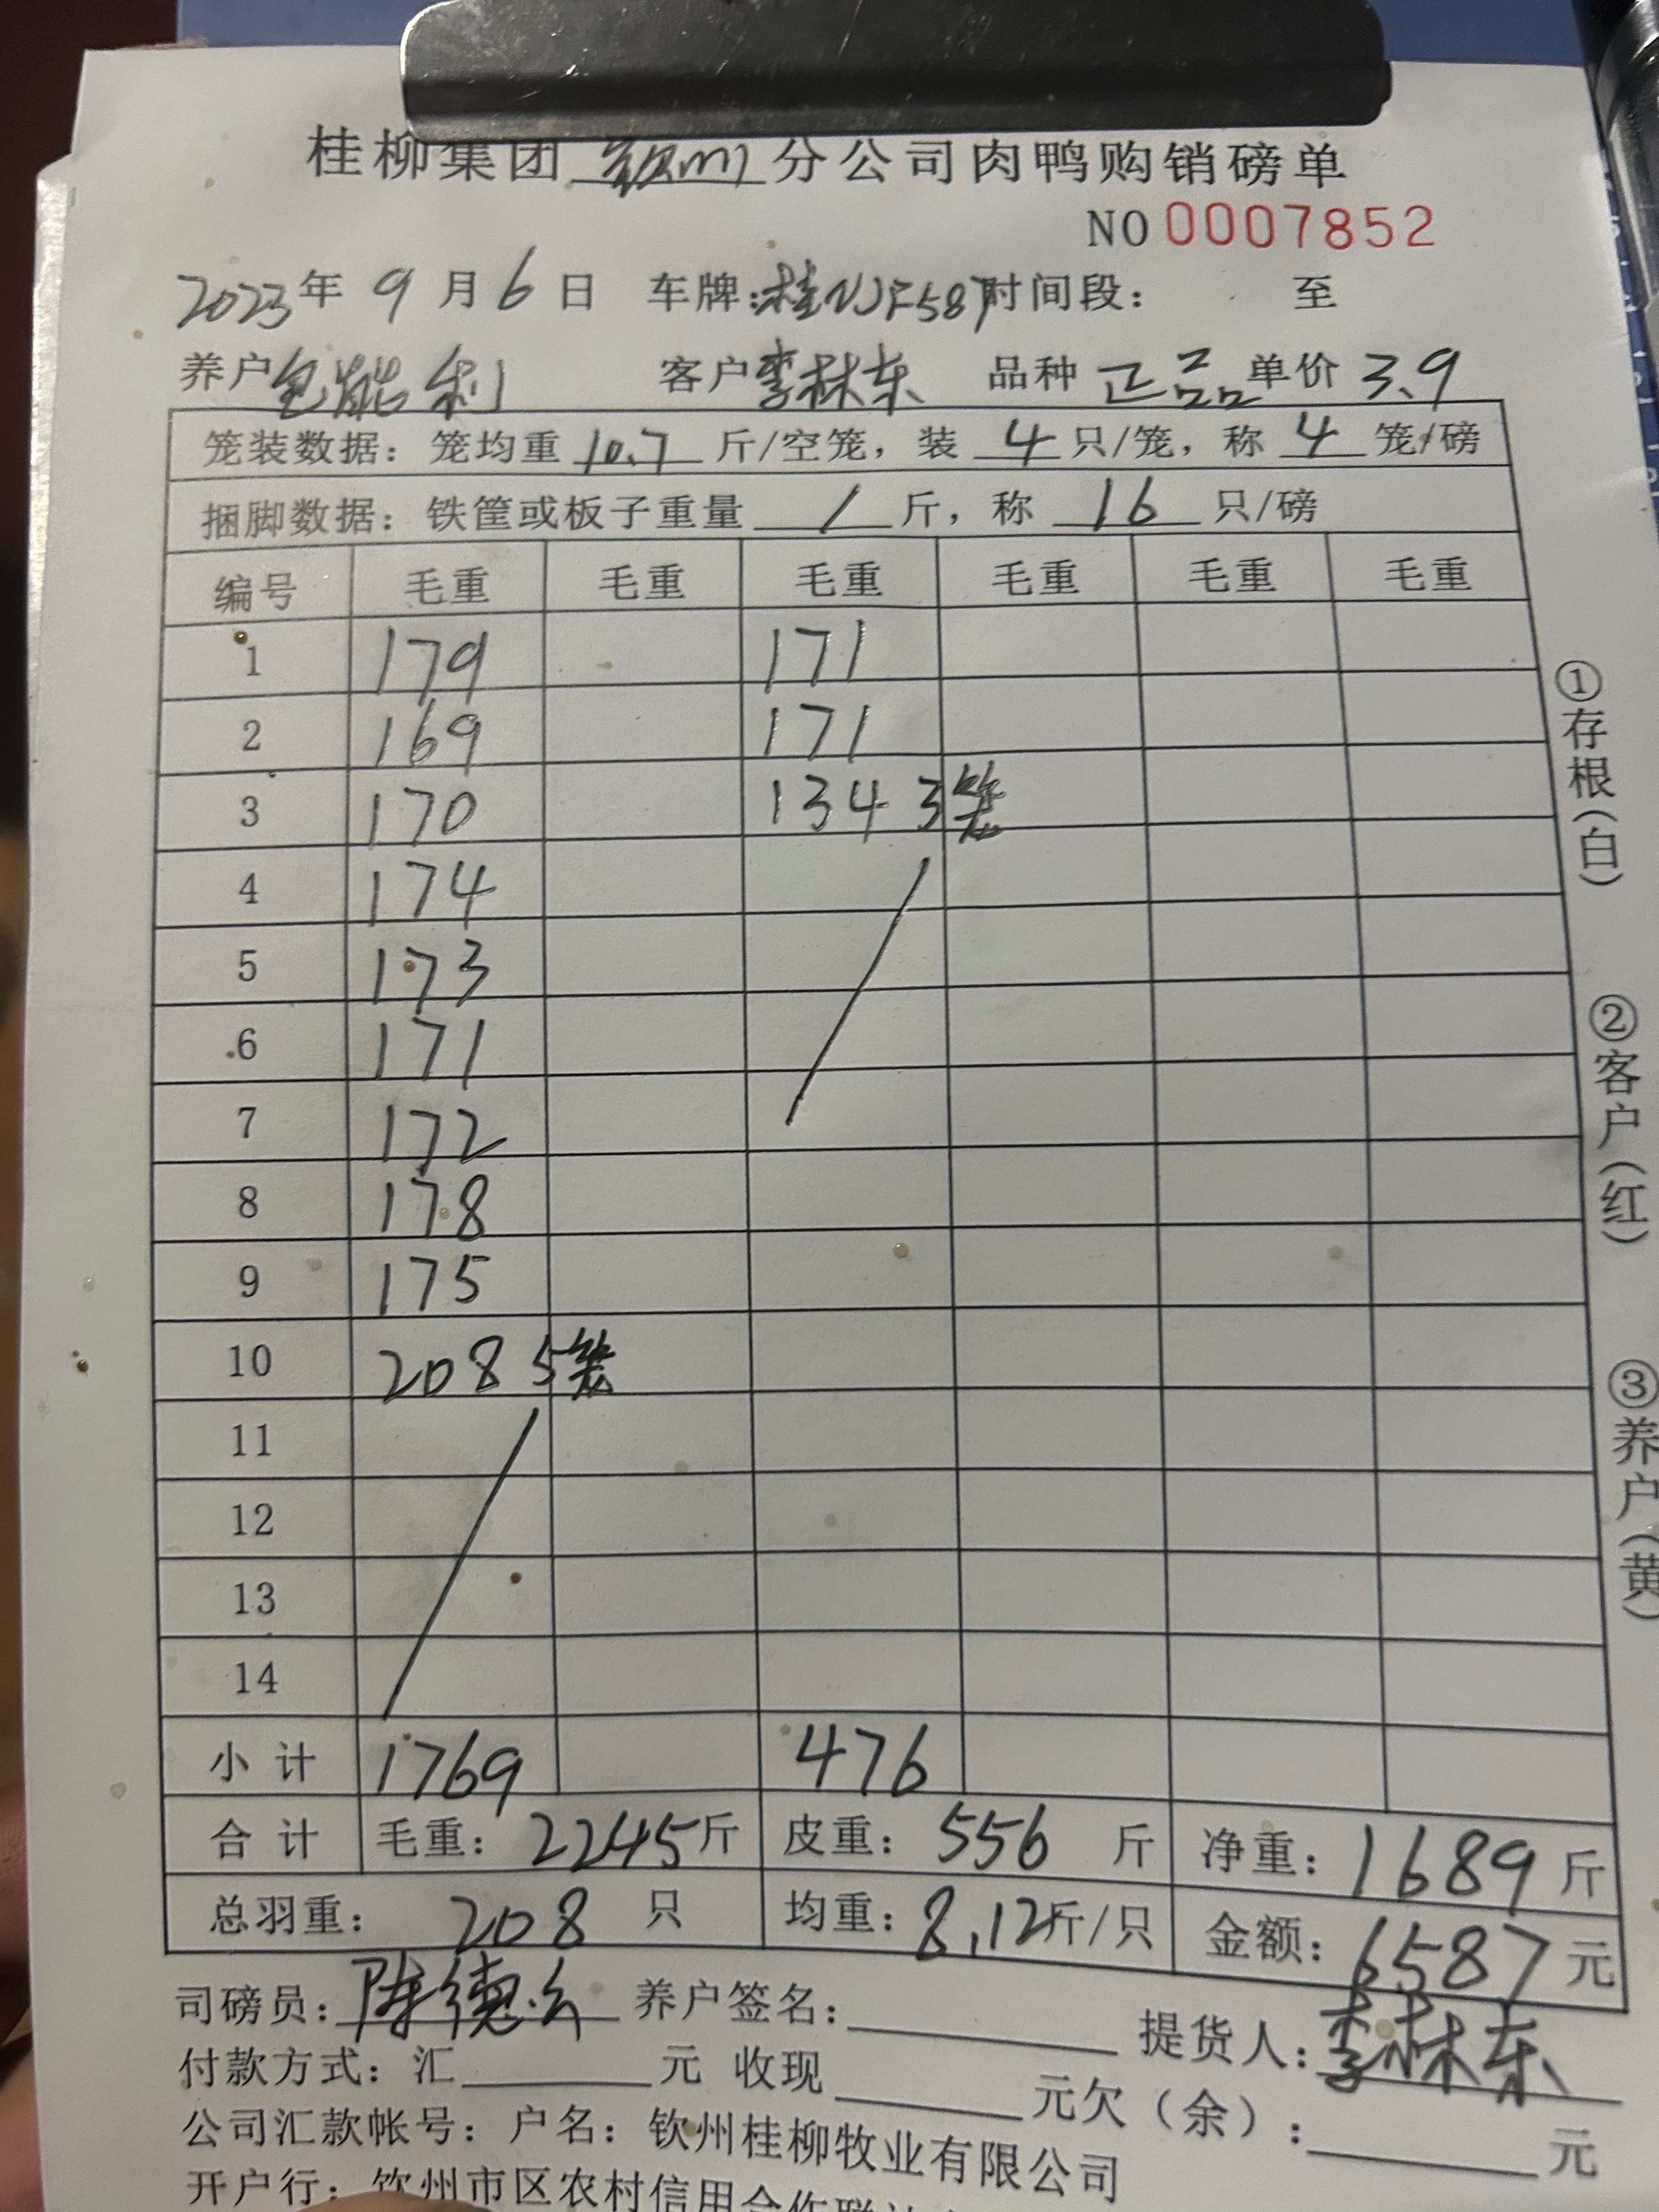 桂柳集团 钦州 分公司肉鸭购销磅单
NO 0007852
2023年 9 月 6 日 车牌:桂NJF587 时间段: 至
养户 包能利 客户 李林东 品种 正品 单价 3.9
笼装数据: 笼均重 10.7 斤/空笼, 装 4 只/笼, 称 4 笼/磅
捆脚数据: 铁筐或板子重量 / 斤, 称 16 只/磅
编号 毛重 毛重 毛重 毛重 毛重 毛重
1 179 171
2 169 171
3 170 134 3笼
4 174
5 173
6 171
7 172
8 178
9 175
10 208 5笼
11
12
13
14
小 计 1769 476
合 计 毛重: 2245斤 皮重: 556 斤 净重: 1689 斤
总羽重: 208 只 均重: 8.12斤/只 金额: 6587 元
司磅员: 陈德 养户签名: 提货人: 李林东
付款方式: 汇 元 收现 元欠(余): 元
公司汇款帐号: 户名: 钦州桂柳牧业有限公司
开户行: 钦州市区农村信用合作联
①存根(白)
②客户(红)
③养户(黄)